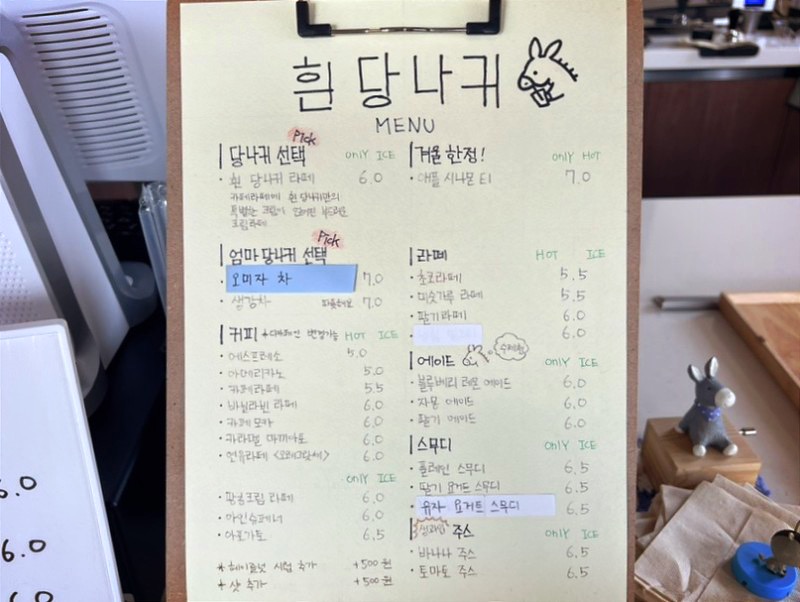 흰 당나귀
MENU
당나귀 선택 Pick only ICE
· 흰 당나귀 라떼 6.0
카페라떼에 흰 당나귀만의
특별한 크림이 얹어진 부드러운
크림라떼
엄마 당나귀 선택 Pick
· 오미자 차 7.0
· 생강차 7.0
커피 *디카페인 변경가능 HOT ICE
· 에스프레소 5.0
· 아메리카노 5.0
· 카페라떼 5.5
· 바닐라빈 라떼 6.0
· 카페모카 6.0
· 카라멜 마끼아또 6.0
· 연유라떼 6.0
only ICE
크림 라떼 6.0
· 아인슈페너 6.0
· 아포가토 6.5
* 헤이즐넛 시럽 추가 +500원
* 샷 추가 +500원
겨울 한정! only HOT
· 애플 시나몬 티 7.0
라떼 HOT ICE
· 초코라떼 5.5
· 미숫가루 라떼 5.5
· 딸기라떼 6.0
· 6.0
에이드 수제청 only ICE
· 블루베리 레몬 에이드 6.0
· 자몽 에이드 6.0
· 딸기 에이드 6.0
스무디 only ICE
· 플레인 스무디 6.5
· 딸기 요거트 스무디 6.5
· 유자 요거트 스무디 6.5
생과일 주스 only ICE
· 바나나 주스 6.5
· 토마토 주스 6.5
6.0
6.0
6.0